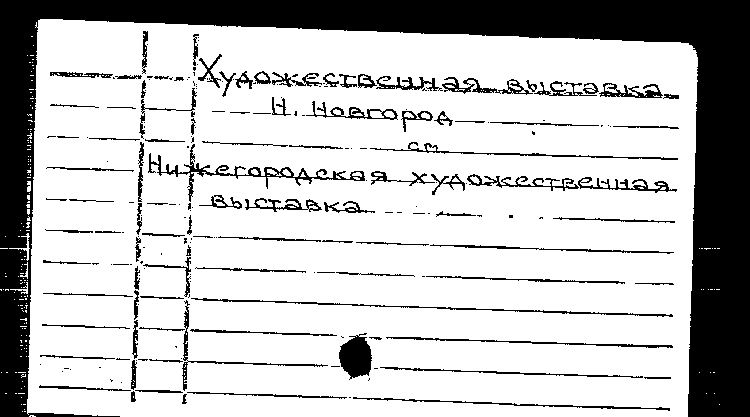 Художественная выставка
Н. Новгород
см
Нижегородская художественная
выставка